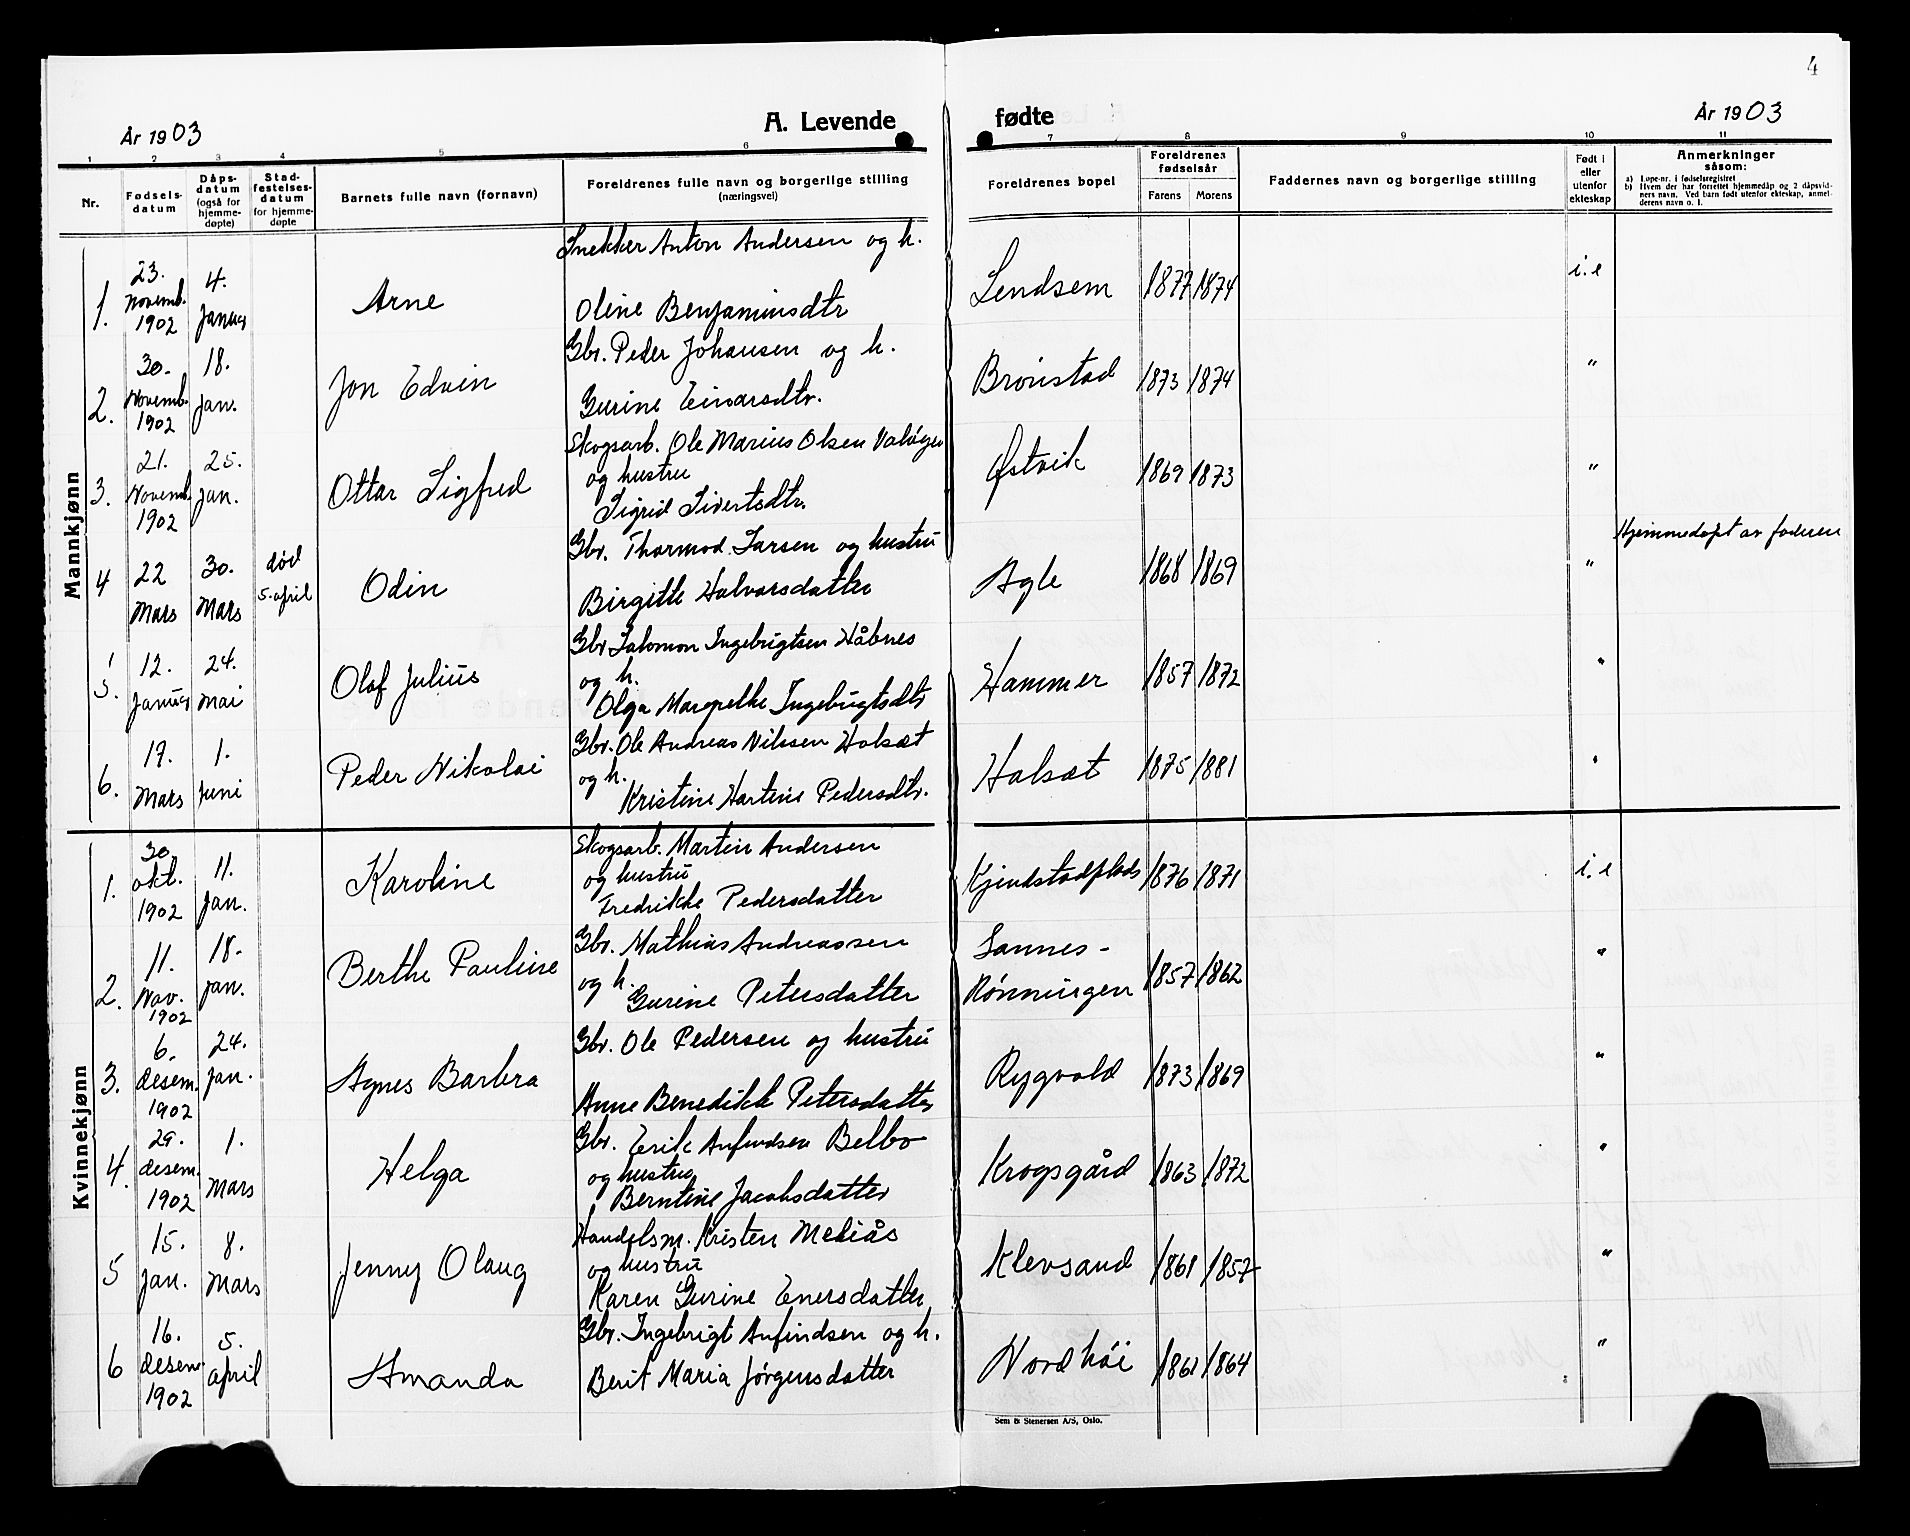 4
År 1903
A. Levende
fødte
År 1903
1 2 3 4 5 6 7 8 9 10 11
Nr.
Fødsels-
datum
Dåps-
datum
(også for
hjemme-
døpte)
Stad-
festelses-
datum
for hjemme-
døpte
Barnets fulle navn (fornavn)
Foreldrenes fulle navn og borgerlige stilling
(næringsvei)
Foreldrenes bopel
Foreldrenes
fødselsår
Farens Morens
Faddernes navn og borgerlige stilling
Født i
eller
utenfor
ekteskap
Anmerkninger
såsom:
a) Løpe-nr. i fødselsregistret
b) Hvem der har forrettet hjemmedåp og 2 dåpsvid-
ners navn. Ved barn født utenfor ekteskap, anmel-
derens navn o. l.
Mannkjønn
1. 23. Novemb. 1902 4. Januar Arne
Snekker Anton Andersen og h.
Oline Benjaminsdtr
Lendsem 1877 1874 i. e
2. 30. Novemb. 1902 18. Jan. Jon Edvin
Gbr. Peder Johansen og h.
Gurine Einarsdtr.
Brøristad 1873 1874 "
3. 21. Novemb. 1902 25. Jan. Ottar Sigfred
Skogsarb. Ole Marius Olsen
og hustru
Sigrid Sivertsdtr.
Østvik 1869 1873 "
4 22 Mars 30. Mars død 5. april Odin
Gbr. Thormod Larsen og hustru
Birgitte Halvorsdatter
Agle 1868 1869 " Hjemmedøpt av faderen
5. 12. Januar 24. Mai Olaf Julius
Gbr Salomon Ingebrigtsen Håbnes
og h.
Olga Ingebrigtsdtr
Hammer 1857 1872 "
6. 17. Mars 1. Juni Peder Nikolai
Gbr. Ole Andreas Nilssen Halsæt
og h.
Kristine Hartine Pedersdtr.
Halsæt 1875 1881 "
Kvinnekjønn
1. 30 okt. 1902 11. Jan. Karoline
Skogsarb. Martin Andersen
og hustru
Fredrikke Pedersdatter
Kjindstadplads 1876 1871 i. e
2. 11. Nov. 1902 18. Jan. Berthe Pauline
Gbr. Mathias Andreassen
og h.
Gurine Petersdatter
Sannes-
Rønningen 1857 1862 "
3. 6. desem. 1902 24. Jan. Agnes Barbra
Gbr. Ole Pedersen og hustru
Anne Benedikte Petersdatter
Rygvold 1873 1869 "
4. 29. desem. 1902 1. Mars Helga
Gbr. Erik Anfindsen Belbo
og hustru
Berntine Jacobsdatter
Krogsgård 1863 1872 "
5 15. Jan. 8. Mars Jenny Olaug
Handelsm. Kristen Meliås
og hustru
Karen Gurine Enersdatter
Klevsand 1861 1857 "
6 16. desem 1902 5. april Amanda
Gbr. Ingebrigt Anfindsen og h.
Berit Maria Jørgensdatter
Nordhøi 1861 1864 "
Sem & Stenersen A/S, Oslo.